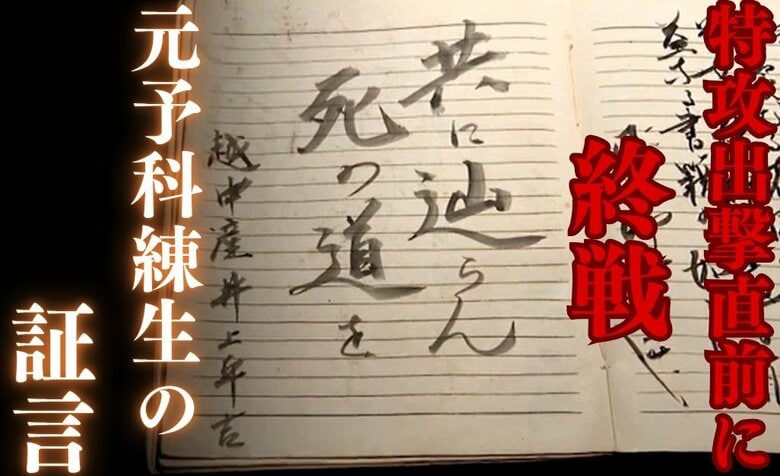 特攻出撃直前に
終戦
共に辿らん
死の道を
越中産井上年吉
元予科練生の
証言